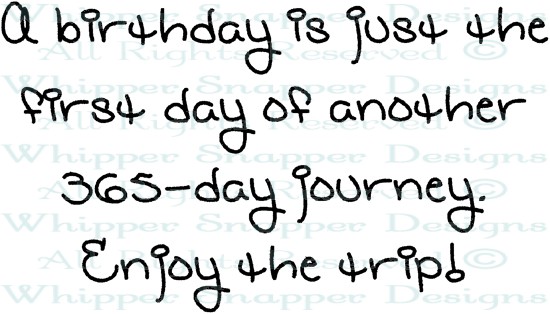 A birthday is just the
first day of another
365-day journey.
Enjoy the trip!
Whipper Snapper Designs
All Rights Reserved ©
Whipper Snapper Designs
All Rights Reserved ©
Whipper Snapper Designs
All Rights Reserved ©
Whipper Snapper Designs
All Rights Reserved ©
Whipper Snapper Designs